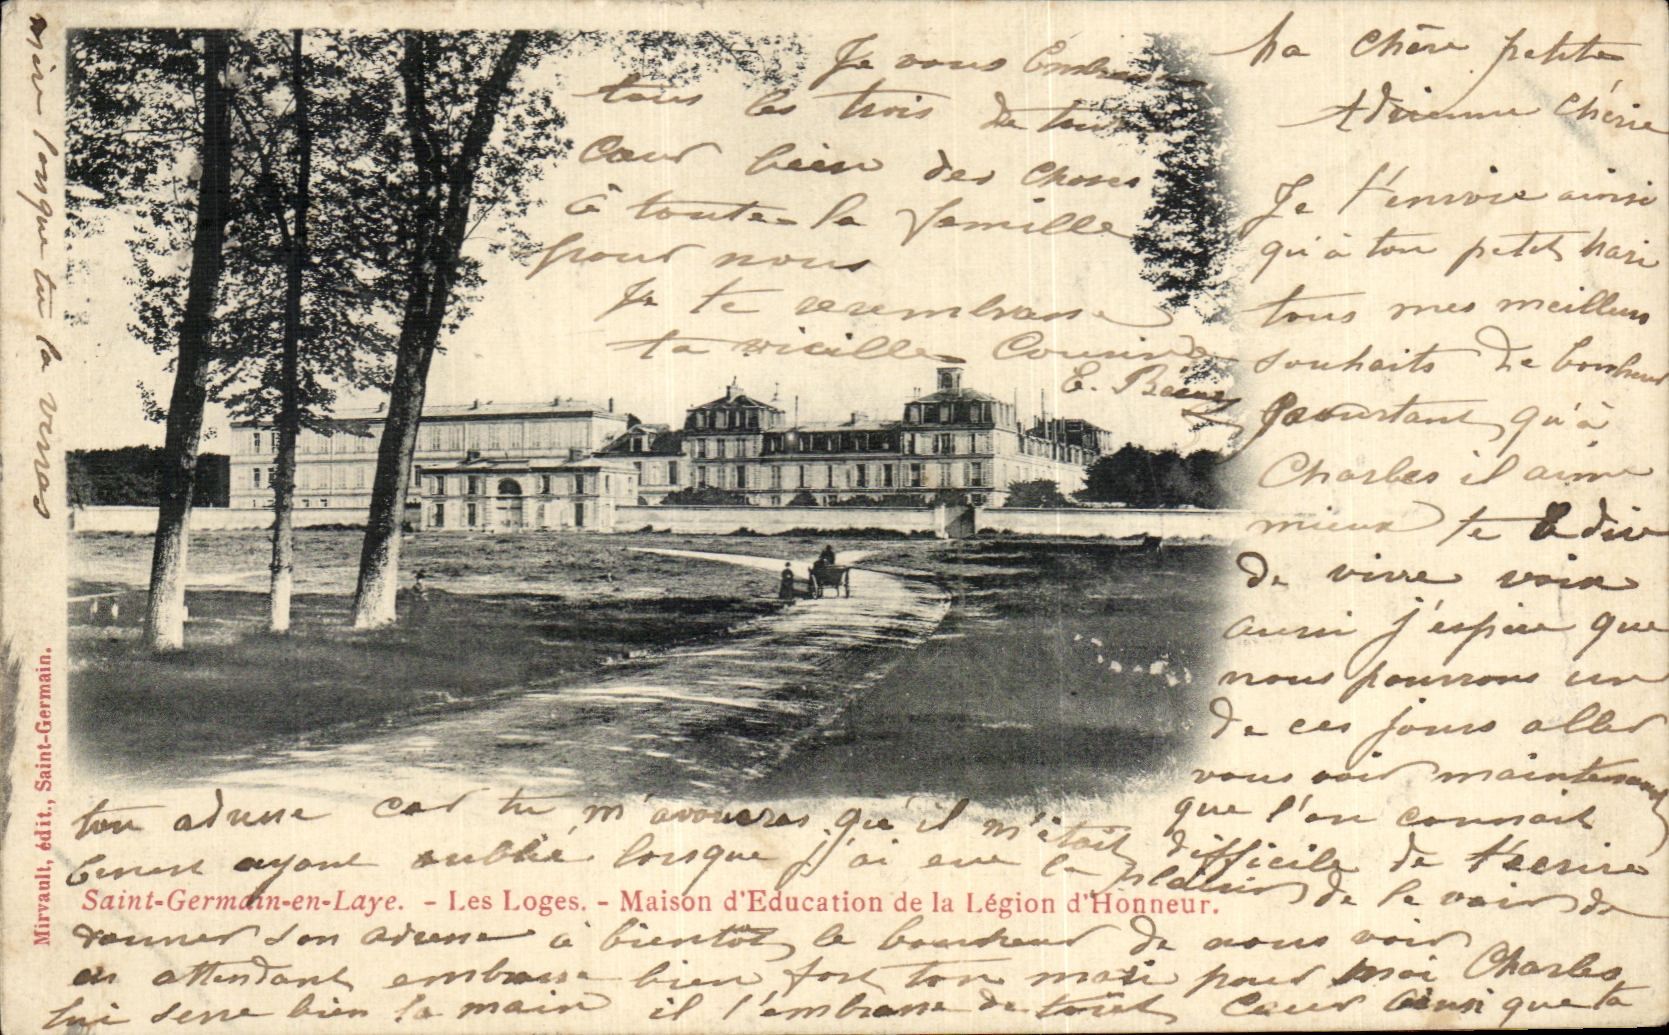 Ma chère petite
Adrienne chérie
Je t'envoie ainsi
qu'à ton petit Mari
tous mes meilleurs
souhaits de bonheur
pourtant qu'à
Charles il aime
mieux te dire
de vive voix
aussi j'espère que
nous pourrons un
de ces jours aller
vous voir maintenant
que l'on connait
ton adresse car tu m'avoueras qu'il m'était difficile de t'écrire
Ernest ayant oublié lorsque j'ai eue le plaisir de le voir de
donner son adresse à bientôt le bonheur de nous voir
en attendant embrasse bien fort ton mari pour moi Charles
lui serre bien la main il t'embrasse de tout cœur ainsi que ta
mère lorsque tu la verras
Je vous embrasse
tous les trois de tout
cœur bien des choses
à toute la famille
pour nous
Je te rerembrasse
ta vieille Cousine
E.
Saint-Germain-en-Laye. - Les Loges. - Maison d'Education de la Légion d'Honneur.
Mirvault, édit., Saint-Germain.